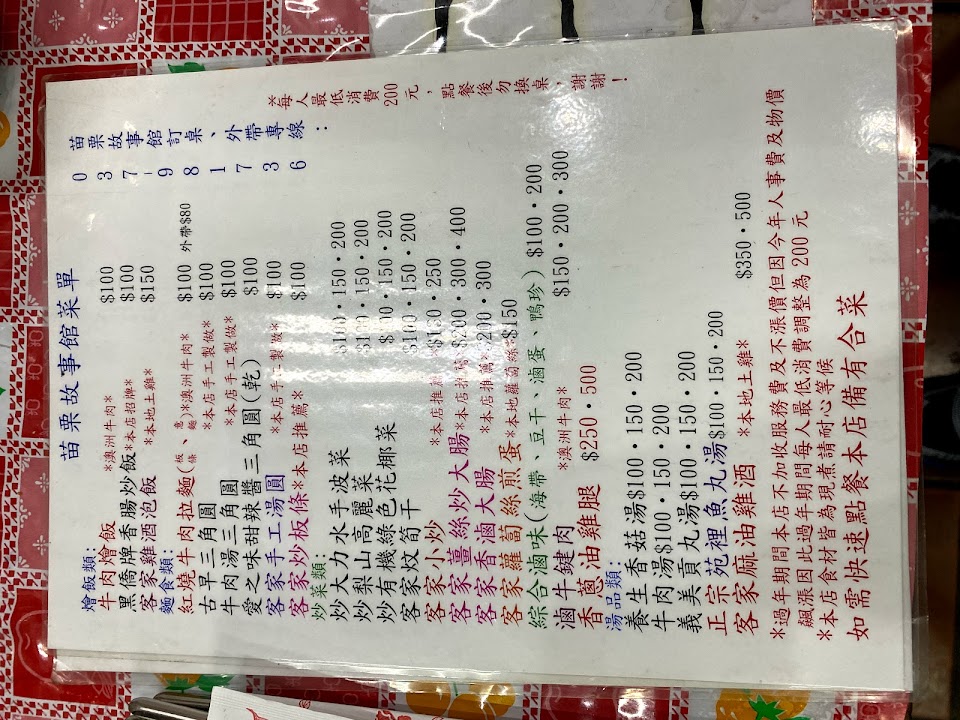 苗栗故事館菜單
苗栗故事館訂桌、外帶專線：
037-981736
*每人最低消費200元，點餐後勿換桌，謝謝！
燴飯類：
牛肉燴飯 *澳洲牛肉* $100
黑橋牌香腸炒飯*本店招牌* $100
客家雞酒泡飯 *本地土雞* $150
麵食類：
紅燒牛肉拉麵(板條、寬麵)*澳洲牛肉* $100 外帶$80
古早三角圓 *本店手工製做* $100
牛肉湯三角圓 *本店手工製做* $100
愛之味甜辣醬三角圓(乾) $100
客家手工湯圓 *本店手工製做* $100
客家炒板條*本店推薦* $100
炒菜類：
炒大力水手波菜 $100·150·200
炒梨山高麗菜 $100·150·200
炒有機綠色花椰菜 $100·150·200
客家炆筍干 $100·150·200
客家小炒 *本店推薦* $150·250
客家薑絲炒大腸*本店推薦* $200·300·400
客家香滷大腸 *本店推薦* $200·300
客家蘿蔔絲煎蛋*本地蘿蔔絲*$150
綜合滷味(海帶、豆干、滷蛋、鴨珍) $100·200
滷牛鍵肉 *澳洲牛肉* $150·200·300
香蔥油雞腿 $250·500
湯品類：
養生香菇湯$100·150·200
牛肉湯$100·150·200
義美貢丸湯$100·150·200
正宗苑裡魚丸湯$100·150·200
客家麻油雞酒 *本地土雞* $350·500
*過年期間本店不加收服務費及不漲價但因今年人事費及物價
飆漲因此過年期間每人最低消費調整為200元
*本店食材皆為現煮請耐心等候
如需快速點餐本店備有合菜